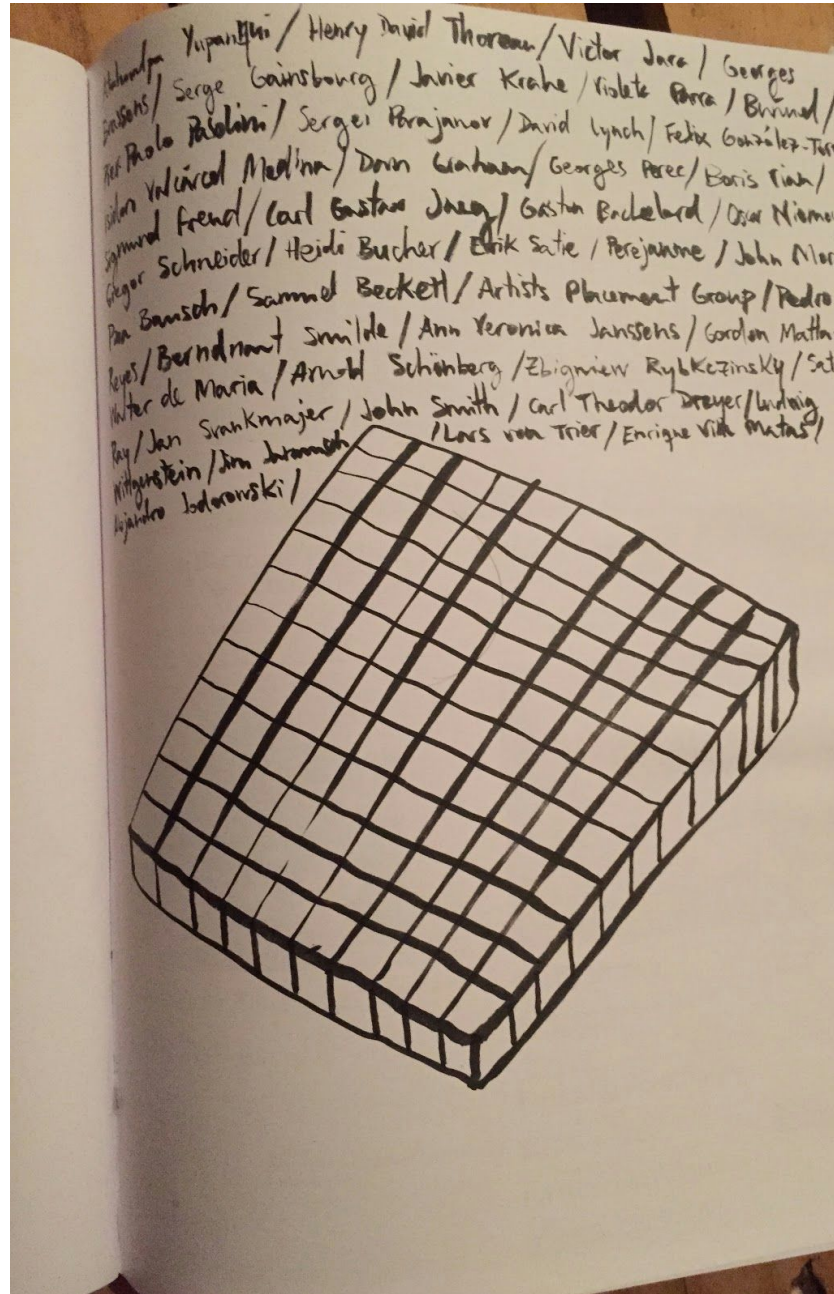 Atahualpa Yupanqui / Henry David Thoreau / Victor Jara / Georges
Brassens / Serge Gainsbourg / Javier Krahe / Violeta Parra / Buñuel /
Pier Paolo Pasolini / Sergei Parajanov / David Lynch / Felix González-Torr
Isidoro Valcárcel Medina / Dan Graham / Georges Perec / Boris Vian /
Sigmund Freud / Carl Gustav Jung / Gaston Bachelard / Oscar Nieme
Gregor Schneider / Heidi Bucher / Erik Satie / Perejaume / John Mor
Pina Bausch / Samuel Beckett / Artists Placement Group / Pedro
Reyes / Berndnaut Smilde / Ann Veronica Janssens / Gordon Matta
Walter de Maria / Arnold Schönberg / Zbigniew Rybkczinsky / Sat
Ray / Jan Svankmajer / John Smith / Carl Theodor Dreyer / Ludwig
Wittgenstein / Jim Jarmusch / Lars von Trier / Enrique Vila Matas /
Alejandro Jodorowski /